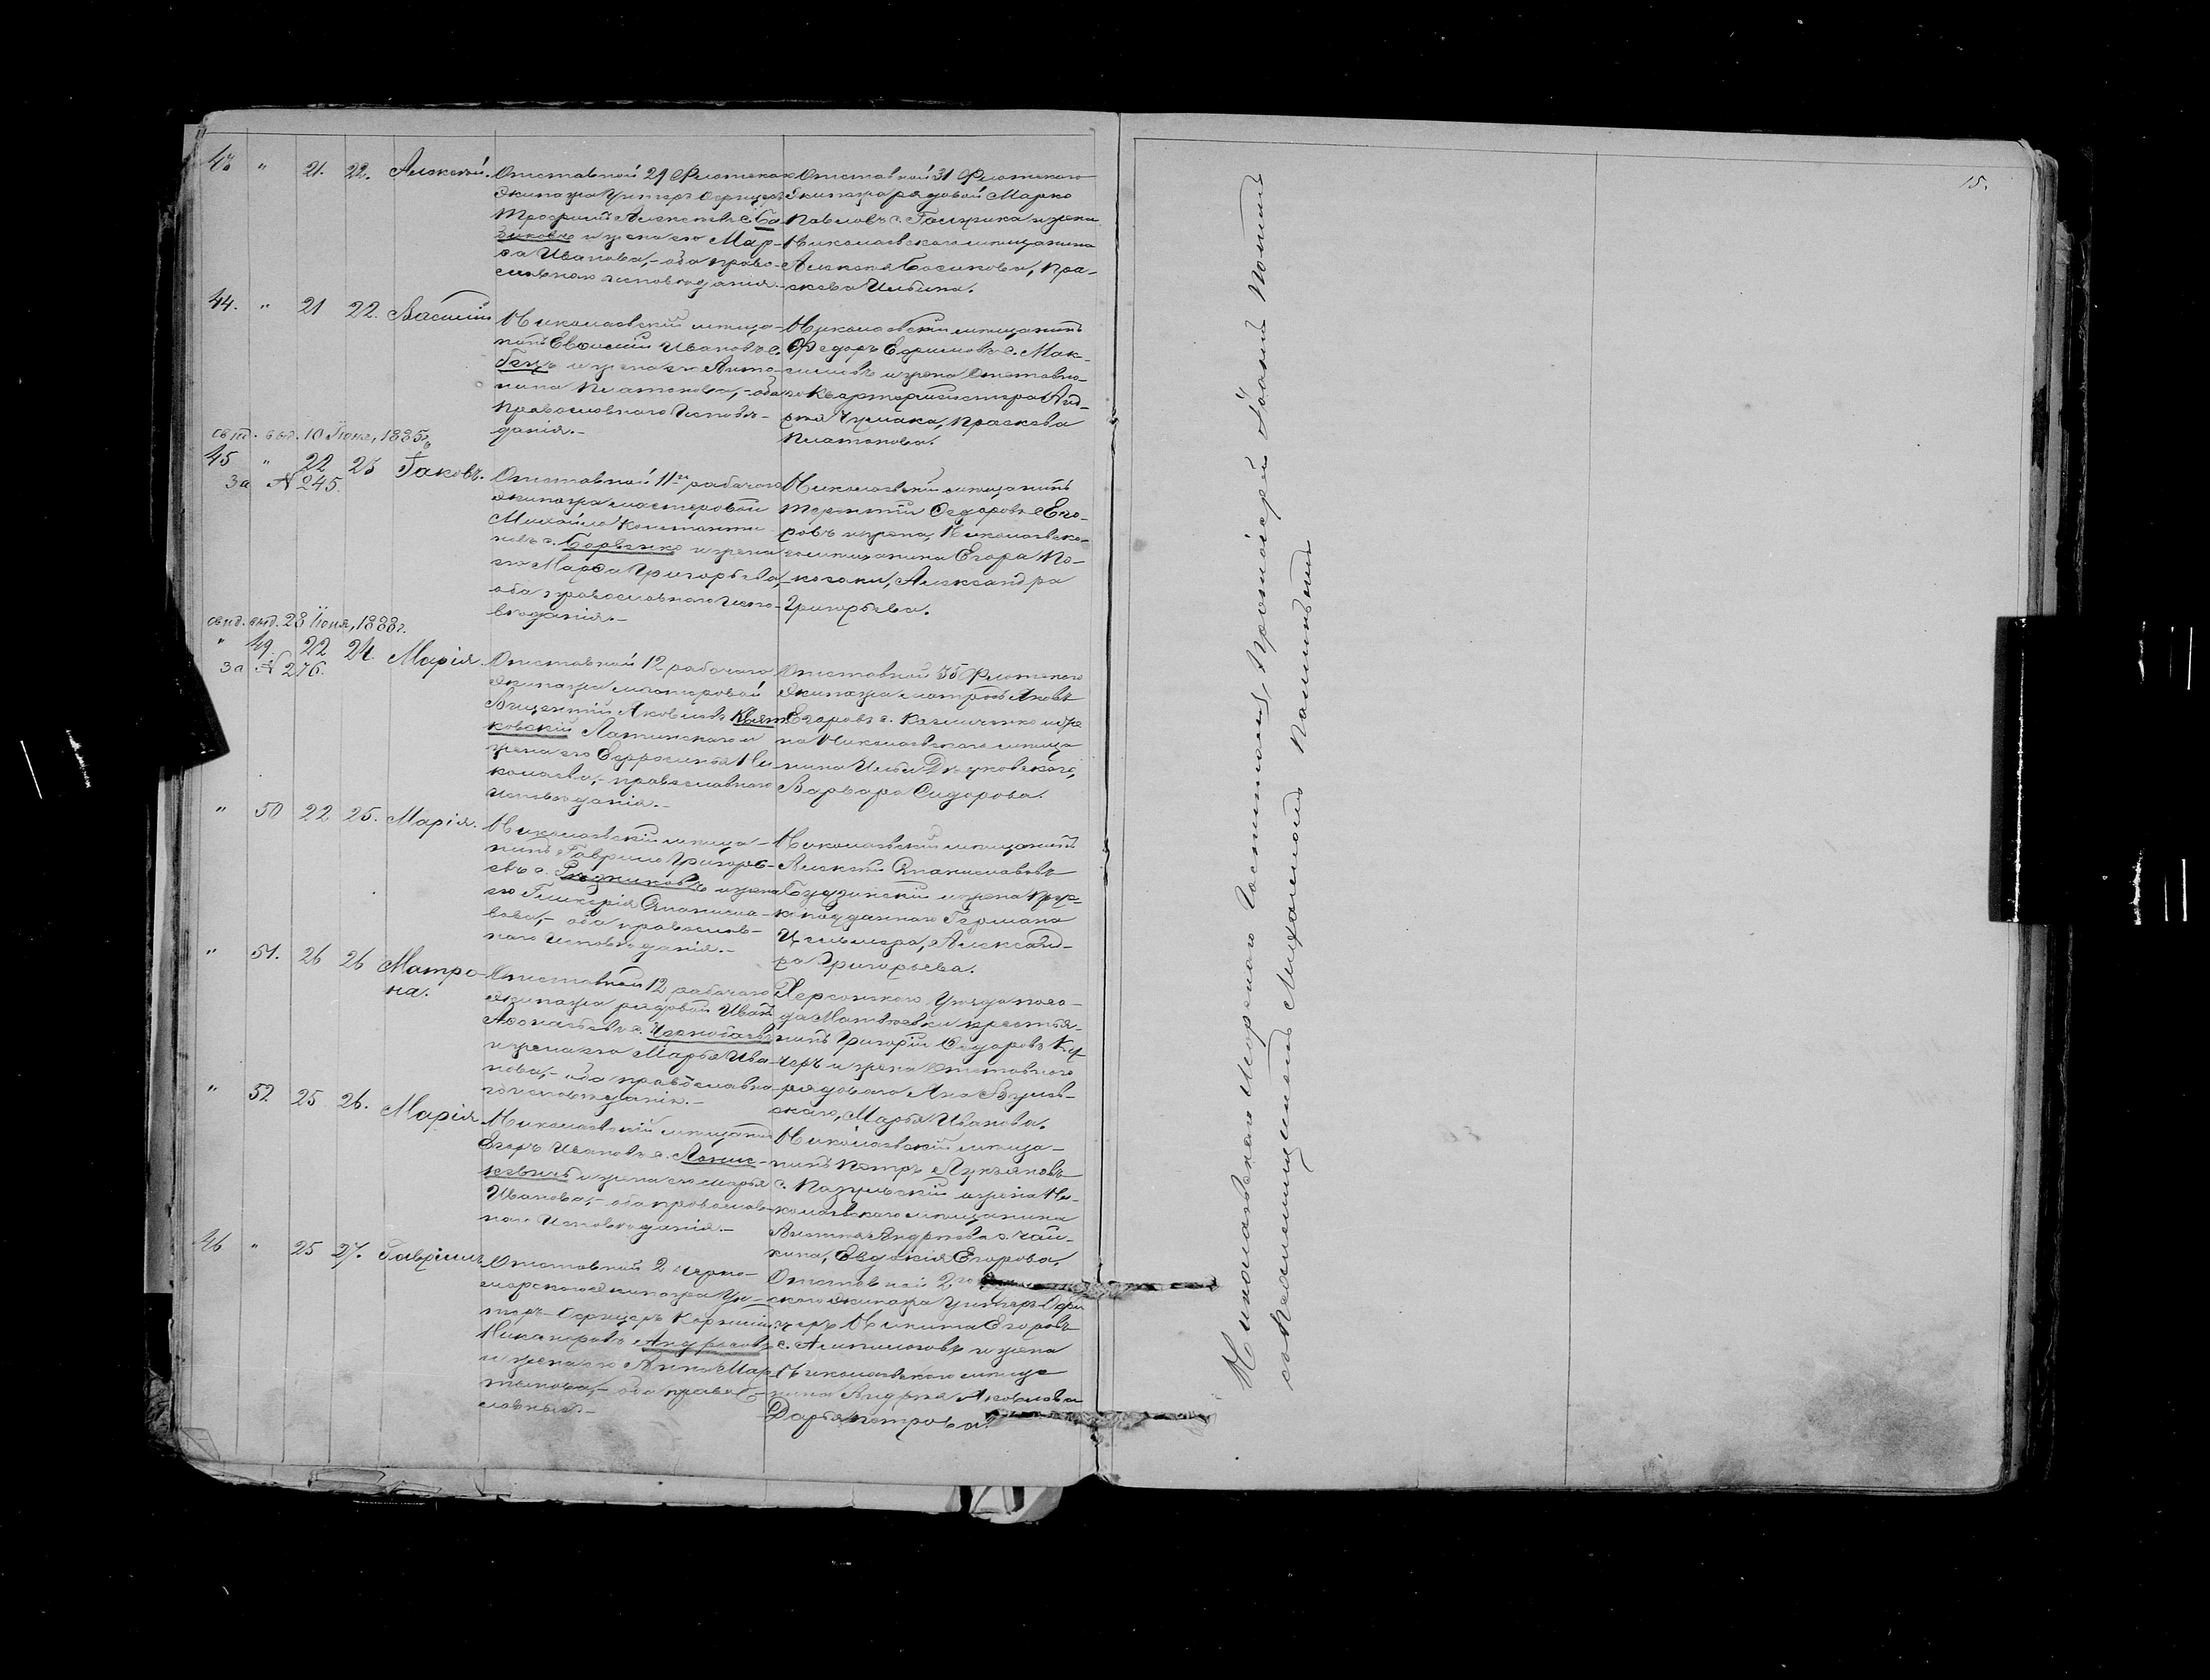 15.
43 " 21. 22. Алексѣй.
Отставной 29 Флотскаго
Экипажа Унтеръ Офицеръ
Трофимъ Алексѣевъ с. Ба-
зиковъ и жена его Мар-
ѳа Иванова,- оба право-
славнаго исповѣданія.-
Отставной 31 Флотскаго
Экипажа рядовой Марко
Павловъ с. и жена
Николаевскаго мѣщанина
Алексѣя Босикова, Пра-
скева Ильина.
44. " 21 22. Василій
Николаевскій мѣща-
нинъ Евѳимій Ивановъ с.
и жена его Анто-
нина Платонова,- оба
Православнаго Исповѣ-
данія.-
Николаевскій мѣщанинъ
Ѳедоръ Ефимовъ с. Мак-
симовъ и жена Отставно-
го Квартирмистра Анд-
рея Чумака, Праскева
Платонова.
свид. выд. 10 Іюня, 1885г.
45 " 22 23 Іаковъ.
За № 245.
Отставной 11го рабочаго
экипажа мастеровой
Михайло Константи-
новъ с. Боровенко и жена
его Марѳа Григорьева,
оба православнаго Испо-
вѣданія.-
Николаевскій мѣщанинъ
Терентій Ѳедоровъ с. Его-
ровъ и жена, Николаевска-
го мѣщанина Егора По-
Александра
Григорьева.
свид. выд. 28 Іюня, 1888г.
" 49. 22 24. Марія.
За № 276.
Отставной 12 рабочаго
Экипажа мастеровой
Викентій Яковлевъ Квят-
ковскій Латинскаго и
жена его Евфросинья Ни-
колаева,- православнаго
Исповѣданія.-
Отставной 35 Флотскаго
Экипажа матросъ Яковъ
Егоровъ с. и же
на Николаевскаго мѣща
нина Ильи
Варвара Сидорова.
" 50 22 25. Марія.
Николаевскій мѣща-
нинъ Гаврило Григорь-
евъ с. Рѣзниковъ и жена
его Гликерія Станисла-
вова,- оба православ-
наго Исповѣданія.-
Николаевскій мѣщанинъ
Алексѣй Станиславовъ
и жена Прус-
каго подданнаго Германа
Александ-
ра Григорьева.
" 51. 26 26 Матро-
на.
Отставной 12 рабочаго
экипажа рядовой Иванъ
Аѳонасьевъ с. Чернобаевъ
и жена его Марья Ива-
нова,- оба православна-
го исповѣданія.-
Херсонскаго Уѣзда поса-
да Матвѣевки крестья-
нинъ Григорій Ѳедоровъ Ку-
черъ и жена Отставнаго
рядоваго Яна Вуль-
скаго, Марья Иванова.
" 52. 25 26. Марія
Николаевскій мѣщанинъ
Егоръ Ивановъ с.
и жена его Марья
Иванова,- оба православ-
наго Исповѣданія.-
Николаевскій мѣща-
нинъ Петръ Лукьяновъ
с. и жена Ни-
колаевскаго мѣщанина
Андреева с. Чай-
кина, Евдокія Егорова.
46 " 25 27. Гавріилъ
Отставной 2 Черно-
морскаго экипажа Ун-
теръ-Офицеръ Корнилій
Никаноровъ Андросовъ
и жена его Анна Мар-
тынова,- оба право-
славные.-
Отставной 2го
скаго экипажа Унтеръ-Офи
церъ Никита Егоровъ
с. и жена
Николаевскаго мѣща
нина Андрея Яковлева
Дарья Петрова.
Николаевскаго Морскаго Госпиталя, Протоіерей
съ Псаломщикомъ Михаиломъ